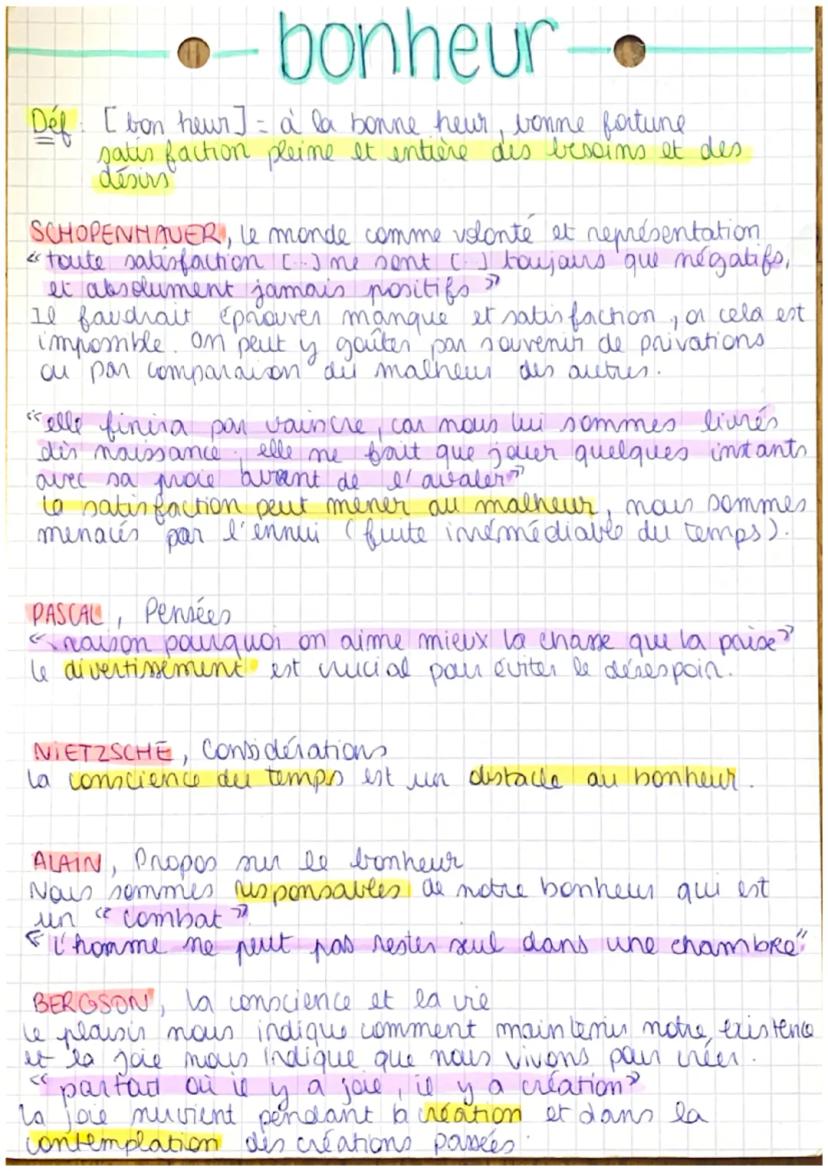 bonheur
Déf : [bon heur] = à la bonne heur, bonne fortune
satisfaction pleine et entière des besoins et des
désirs
SCHOPENHAUER, le monde comme volonté et représentation
"toute satisfaction [...] ne sont [...] toujours que négatifs,
et absolument jamais positifs"
Il faudrait éprouver manque et satisfaction, or cela est
impossible. On peut y goûter par souvenir de privations
ou par comparaison du malheur des autres.
"elle finira par vaincre, car nous lui sommes livrés
dès naissance, elle ne fait que jouer quelques instants
avec sa proie avant de l'avaler"
La satisfaction peut mener au malheur, nous sommes
menacés par l'ennui (fuite irrémédiable du temps).
PASCAL, Pensées
"raison pourquoi on aime mieux la chasse que la prise"
Le divertissement est crucial pour éviter le désespoir.
NIETZSCHE, Considérations
La conscience du temps est un obstacle au bonheur.
ALAIN, Propos sur le bonheur
Nous sommes responsables de notre bonheur qui est
un "combat".
"L'homme ne peut pas rester seul dans une chambre"
BERGSON, La conscience et la vie
Le plaisir nous indique comment maintenir notre existence
et la joie nous indique que nous vivons pour créer.
"partout où il y a joie, il y a création"
La joie survient pendant la création et dans la
contemplation des créations passées.